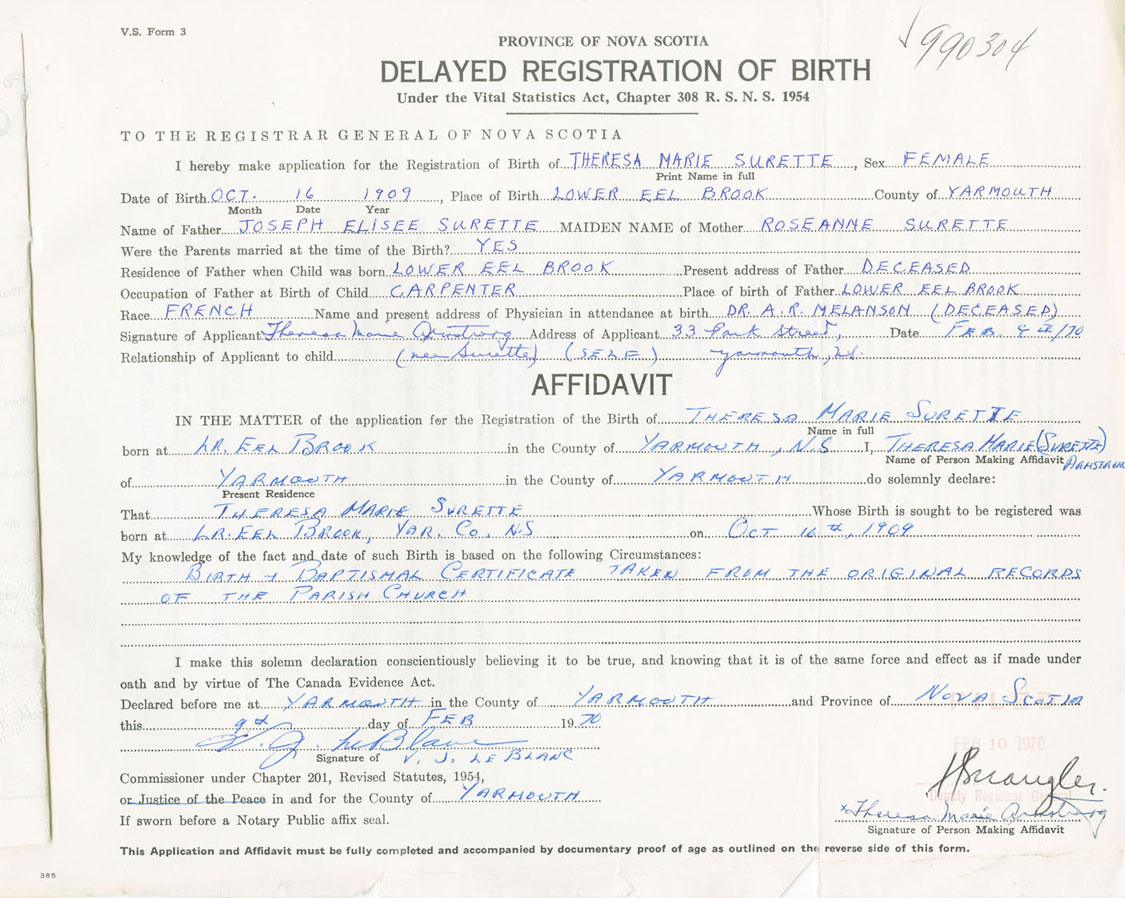 V.S. Form 3
990304
PROVINCE OF NOVA SCOTIA
DELAYED REGISTRATION OF BIRTH
Under the Vital Statistics Act, Chapter 308 R. S. N. S. 1954
TO THE REGISTRAR GENERAL OF NOVA SCOTIA
I hereby make application for the Registration of Birth of THERESA MARIE SURETTE, Sex FEMALE
Print Name in full
Date of Birth OCT. 16 1909, Place of Birth LOWER EEL BROOK County of YARMOUTH
Month Date Year
Name of Father JOSEPH ELISEE SURETTE MAIDEN NAME of Mother ROSEANNE SURETTE
Were the Parents married at the time of the Birth? YES
Residence of Father when Child was born LOWER EEL BROOK Present address of Father DECEASED
Occupation of Father at Birth of Child CARPENTER Place of birth of Father LOWER EEL BROOK
Race FRENCH Name and present address of Physician in attendance at birth DR. A.R. MELANSON (DECEASED)
Signature of Applicant Theresa Marie Armstrong Address of Applicant 33 Park Street, Date FEB. 9th/70
Relationship of Applicant to child (nee Surette) (SELF) Yarmouth, N.S.
AFFIDAVIT
IN THE MATTER of the application for the Registration of the Birth of THERESA MARIE SURETTE
Name in full
born at LR. EEL BROOK in the County of YARMOUTH, N.S I, THERESA MARIE (SURETTE)
Name of Person Making Affidavit ARMSTRONG
of YARMOUTH in the County of YARMOUTH do solemnly declare:
Present Residence
That THERESA MARIE SURETTE Whose Birth is sought to be registered was
born at LR. EEL BROOK, YAR. CO. N.S on OCT 16th, 1909
My knowledge of the fact and date of such Birth is based on the following Circumstances:
BIRTH + BAPTISMAL CERTIFICATE TAKEN FROM THE ORIGINAL RECORDS
OF THE PARISH CHURCH
I make this solemn declaration conscientiously believing it to be true, and knowing that it is of the same force and effect as if made under
oath and by virtue of The Canada Evidence Act.
Declared before me at YARMOUTH in the County of YARMOUTH and Province of NOVA SCOTIA
this 9th day of FEB 1970
V. J. LeBlanc
Signature of V. J. LE BLANC
FEB 10 1970
Commissioner under Chapter 201, Revised Statutes, 1954,
or Justice of the Peace in and for the County of YARMOUTH
Deputy Registrar General
If sworn before a Notary Public affix seal.
x Theresa Marie Armstrong
Signature of Person Making Affidavit
This Application and Affidavit must be fully completed and accompanied by documentary proof of age as outlined on the reverse side of this form.
385